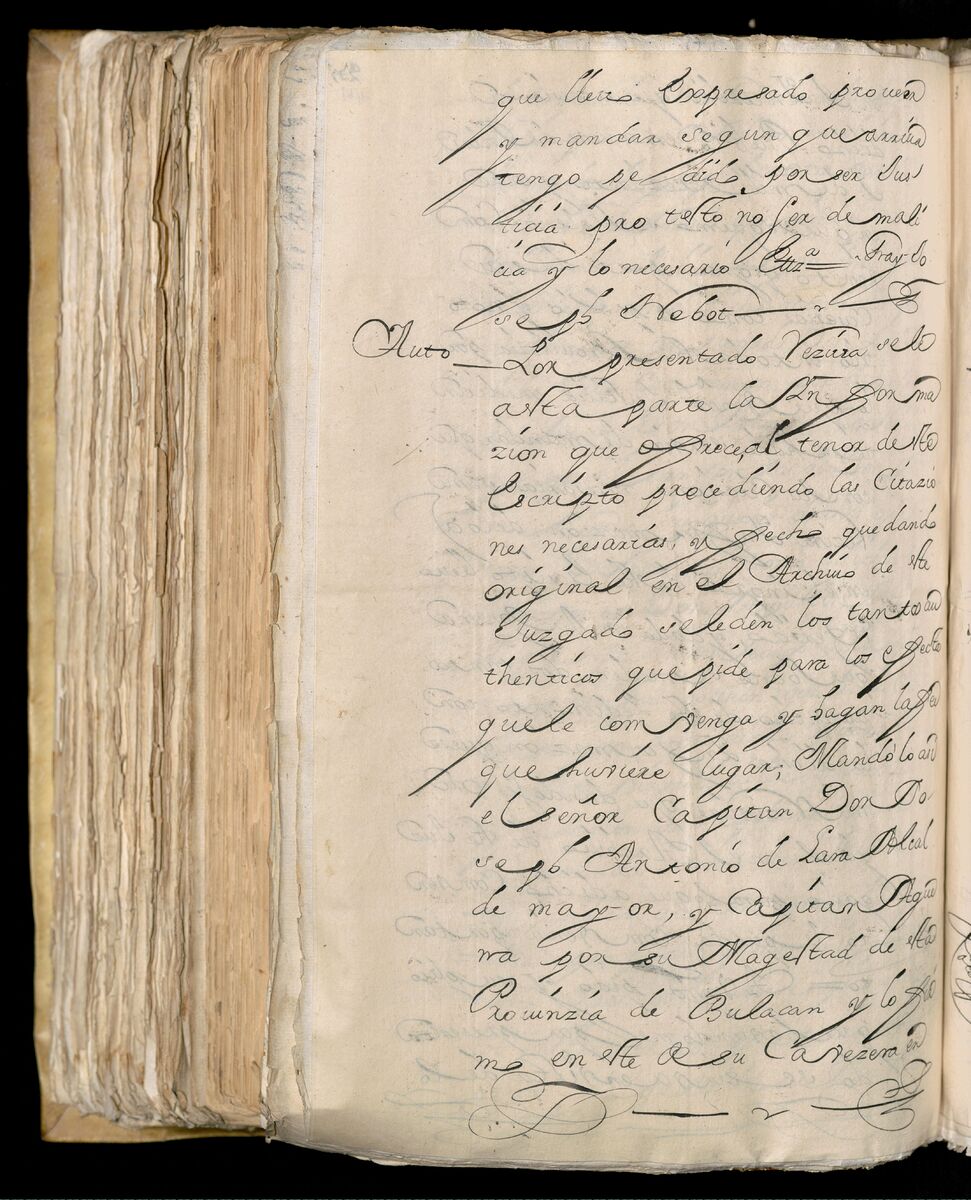 que llevo Expresado proveer
y mandar segun que arriva
tengo pedido por ser Jus
ticia protesto no ser de mali
cia y lo necesario Ettz.ª Fray Jo
seph Nebot
Auto
Por presentado Vezivase le
a esta parte la Ynforma
zión que ofrece, al tenor de este
Escripto procediendo las Citazio
nes necesarias, y fecho quedando
original en el Archivo de este
Juzgado se le dén los tantos au
thenticos que pide para los efectos
que le comvenga y hagan la fee
que huviére lugar; Mandólo assi
el señor Capitan Don Jo
seph Antonio de Lara Alcal
de mayor, y Capitan Aguer
rra por su Magestad de esta
Provinzia de Bulacan y lo fir
mo en este de su Cavezera en